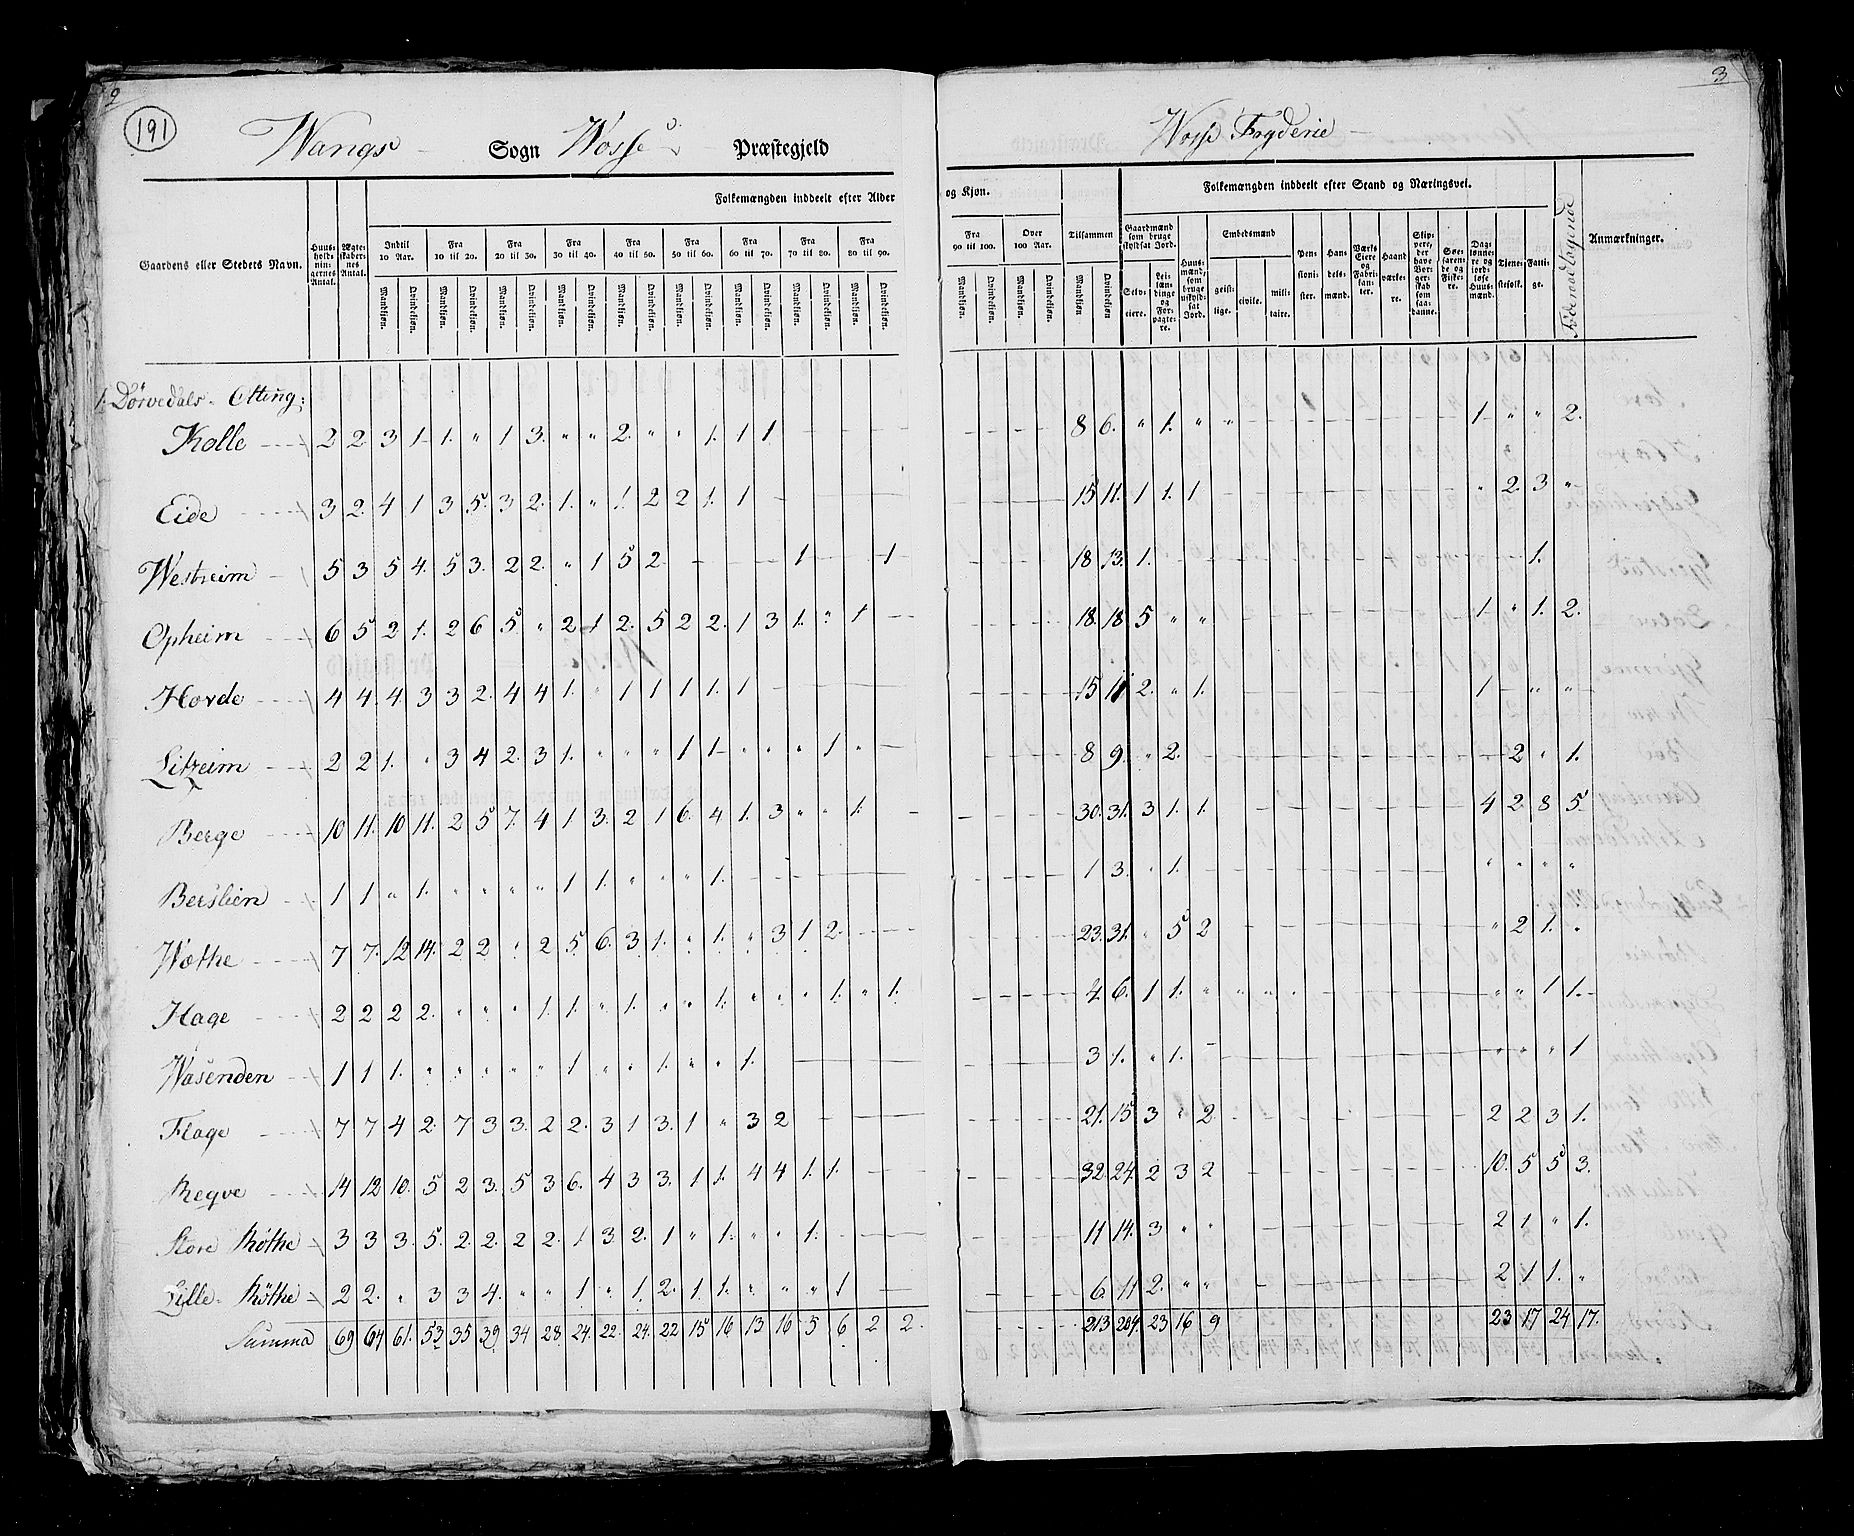 2
191
Wangs Sogn Wosse Præstegjeld
Gaardens eller Stedets Navn.
Huus-holdningernes Antal.
Ægteskabernes Antal.
Folkemængden inddeelt efter Alder
Indtil 10 Aar. Fra 10 til 20. Fra 20 til 30. Fra 30 til 40. Fra 40 til 50. Fra 50 til 60. Fra 60 til 70. Fra 70 til 80. Fra 80 til 90.
Mandkjøn. Qvindekjøn. Mandkjøn. Qvindekjøn. Mandkjøn. Qvindekjøn. Mandkjøn. Qvindekjøn. Mandkjøn. Qvindekjøn. Mandkjøn. Qvindekjøn. Mandkjøn. Qvindekjøn. Mandkjøn. Qvindekjøn. Mandkjøn. Qvindekjøn.
1. Dörvedals Otting:
Kolle 2 2 3 1 1 " 1 3 " " 2 " " 1 1 1
Eide 3 2 4 1 3 5 3 2 1 " 1 2 2 1 1 -
Westreim 5 3 5 4 5 3 2 2 " 1 5 2 - - - - 1 - - 1
Opheim 6 5 2 1 2 6 5 " 2 1 2 5 2 2 1 3 1 " 1 -
Horde 4 4 4 3 3 2 4 4 1 " 1 1 1 1 1 -
Litzeim 2 2 1 " 3 4 2 3 1 " " " 1 1 " " " 1 " -
Berge 10 11 10 11 2 5 7 4 1 3 2 1 6 4 1 3 " " 1 -
Berslien 1 1 " 1 " " " " 1 1 " " " 1 -
Wæthe 7 7 12 14 2 2 " 2 5 6 3 1 " 1 " 3 1 2 - -
Hage 2 2 2 2 " " " 1 1 " 1 " " 1 " " " 1 " 1
Wasenden 1 1 1 " " " " " 1 " " 1 " " 1 -
Flage 7 7 4 2 7 3 3 2 2 3 1 3 1 " 3 2 -
Reqve 14 12 10 5 2 3 5 3 6 4 3 3 1 1 4 4 1 1 - -
Store Röthe 3 3 3 5 2 2 2 2 1 3 2 1 " 1 " " 1 -
Lille Röthe 2 2 " 3 3 4 " " 1 " 1 2 1 1 " " " 1 -
Summa 69 64 61 53 35 39 34 28 24 22 24 22 15 16 13 16 5 6 2 2
3
Woss Fogderie
og Kjøn.
Fra 90 til 100. Over 100 Aar.
Mandkjøn. Qvindekjøn. Mandkjøn. Qvindekjøn.
Tilsammen
Mandkjøn. Qvindekjøn.
Folkemængden inddeelt efter Stand og Næringsvei.
Gaardmænd som bruge skyldsat Jord.
Selveiere.
Leilændinge og Forpagtere.
Huusmænd, som bruge uskyldsat Jord.
Embedsmænd
geistlige. civile. militaire.
Pensionister.
Handelsmænd.
Værks Eiere og Fabrikanter.
Haandværkere.
Skippere, der have Borgerskab som saadanne.
Søefarende og Fiskere.
Daglønnere og jordløse Huusmænd.
Tjenestefolk.
Fattige.
Föderaadtagende
Anmærkninger.
8 6 " 1 " " 1 " " 2
15 11 1 1 1 " 2 3 "
18 13 1 1
18 18 5 " " 1 " 1 2
15 11 2 " 1 1 " " "
8 9 " 2 2 " 1
30 31 3 1 1 4 2 8 5
1 3 " 1 " " " "
23 31 " 5 2 " 2 1 "
4 6 1 1 " " " " " " 1 1
3 1 " 1 " " " 1
21 15 3 " 2 2 2 3 1
32 24 2 3 2 10 5 5 3
11 14 3 " " 2 1 " 1
6 11 2 " " 2 1 1 "
213 204 23 16 9 23 17 24 17